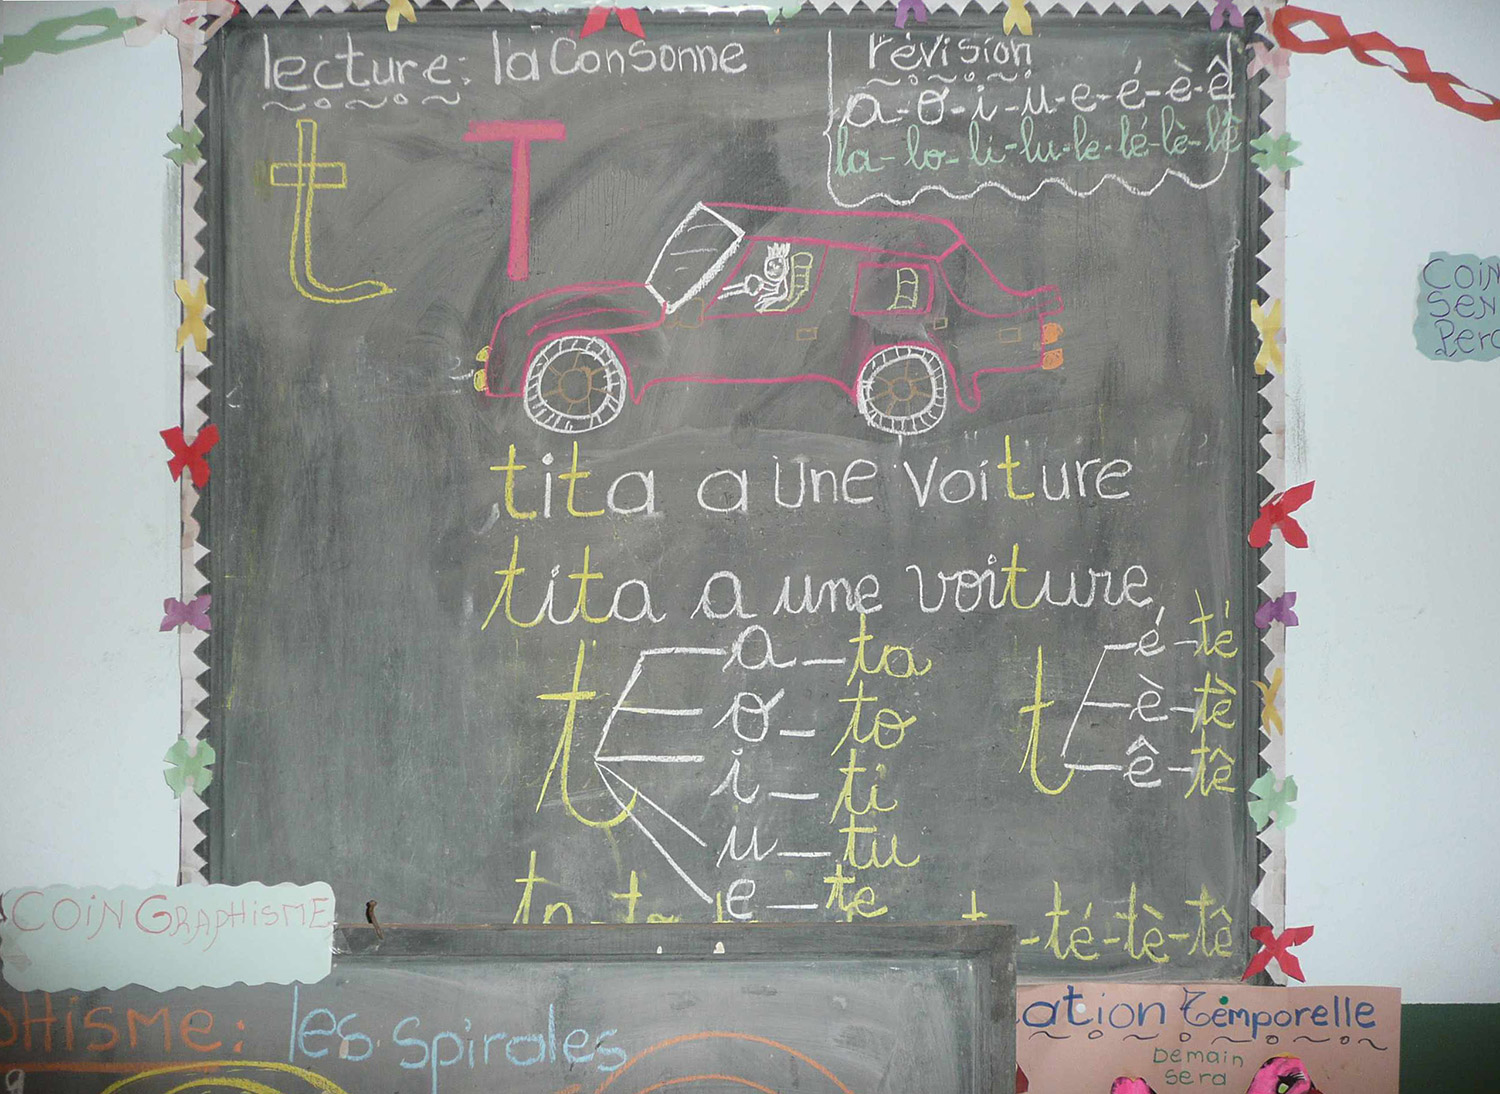 lecture: la Consonne
t T
révision
a-o-i-u-e-é-è-ê
la-lo-li-lu-le-lé-lè-lê
tita a une voiture
tita a une voiture
t
a - ta
o - to
i - ti
u - tu
e - te
t
é - té
è - tè
ê - tê
té-tè-tê
COIN GRAPHISME
les spirales
Temporelle
Demain
sera
COIN